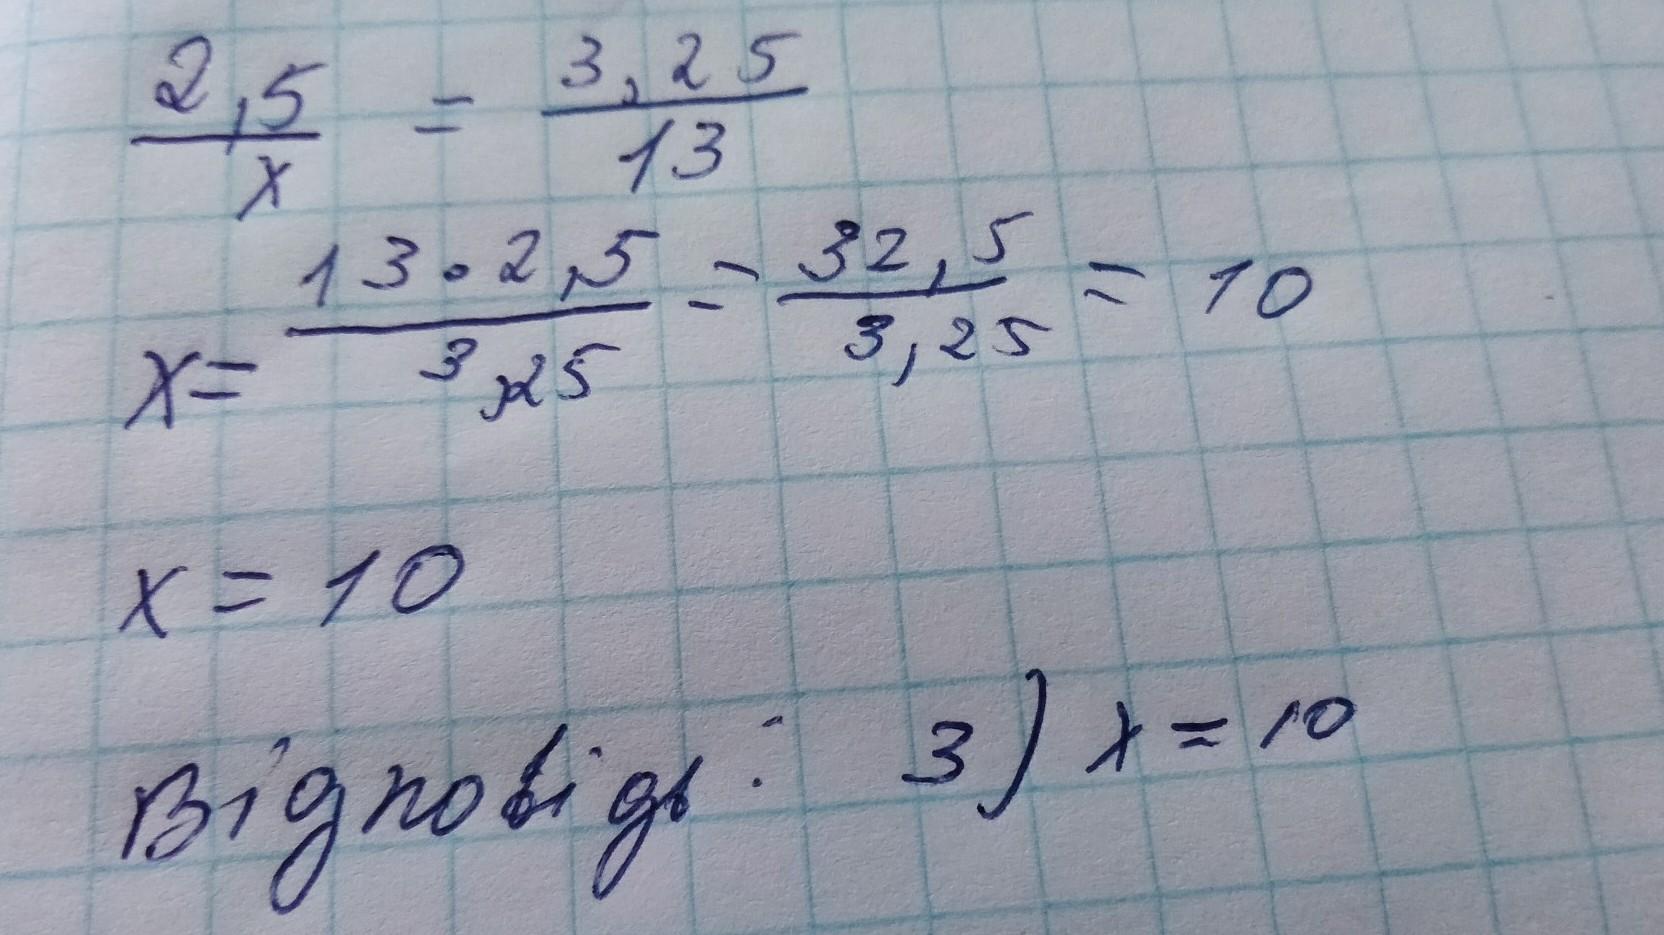 2,5/x = 3,25/13
x = 13·2,5/3,25 = 32,5/3,25 = 10
x = 10
Відповідь: 3) x = 10